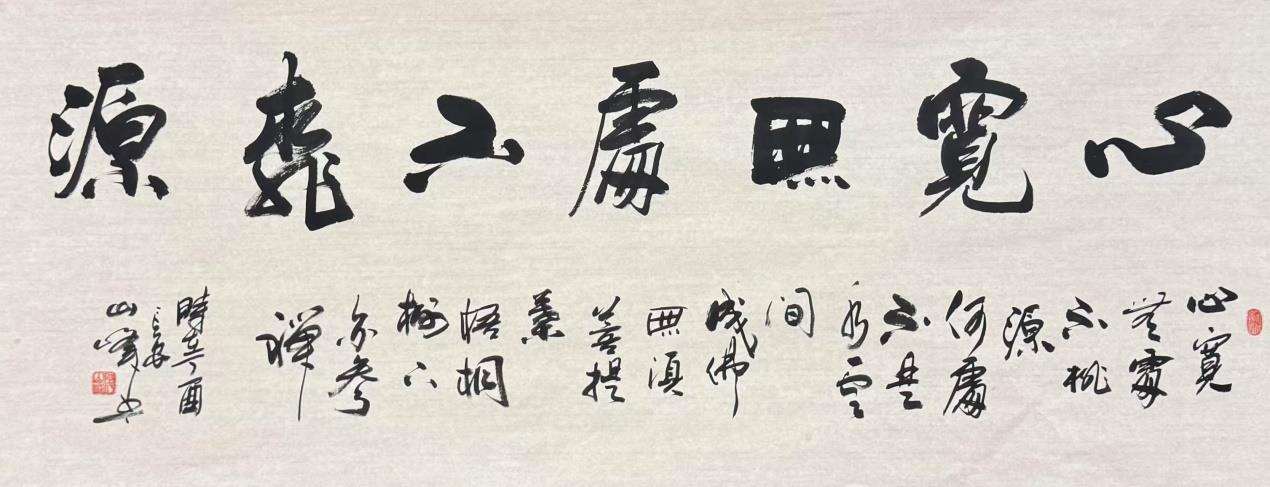 心寬無處不桃源
心寬
無處
不桃
源
何處
不是
水雲
間
成佛
無須
菩提
葉
梧桐
樹下
亦參
禪
時辛酉
長安
山峰書